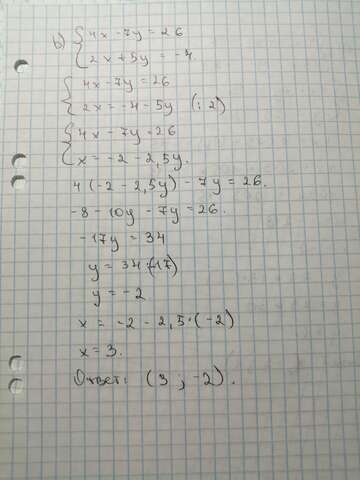 б) { 4x - 7y = 26
2x + 5y = -4.
{ 4x - 7y = 26
2x = -4 - 5y (: 2)
{ 4x - 7y = 26
x = -2 - 2,5y.
4 (-2 - 2,5y) - 7y = 26.
-8 - 10y - 7y = 26.
-17y = 34
y = 34:(-17)
y = -2
x = -2 - 2,5·(-2)
x = 3.
Ответ: (3 ; -2).